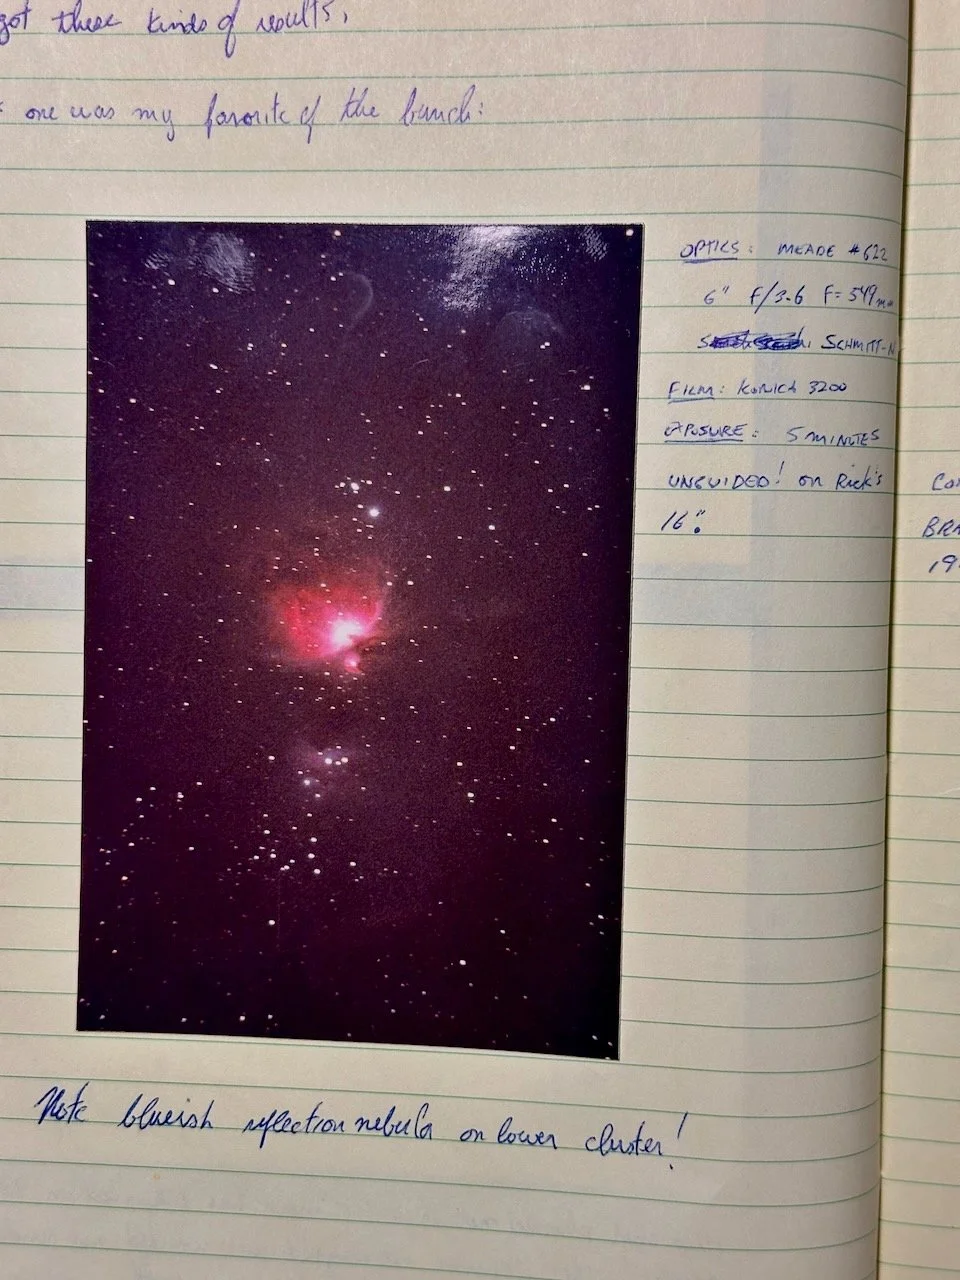 got these kinds of results,
one was my favorite of the bunch:
OPTICS: MEADE #622
6" F/3.6 F=549mm
SCHMITT-N
FILM: KONICA 3200
EXPOSURE: 5 MINUTES
UNGUIDED! on Rick's
16".
Note blueish reflection nebula on lower cluster!
Co
BRA
19